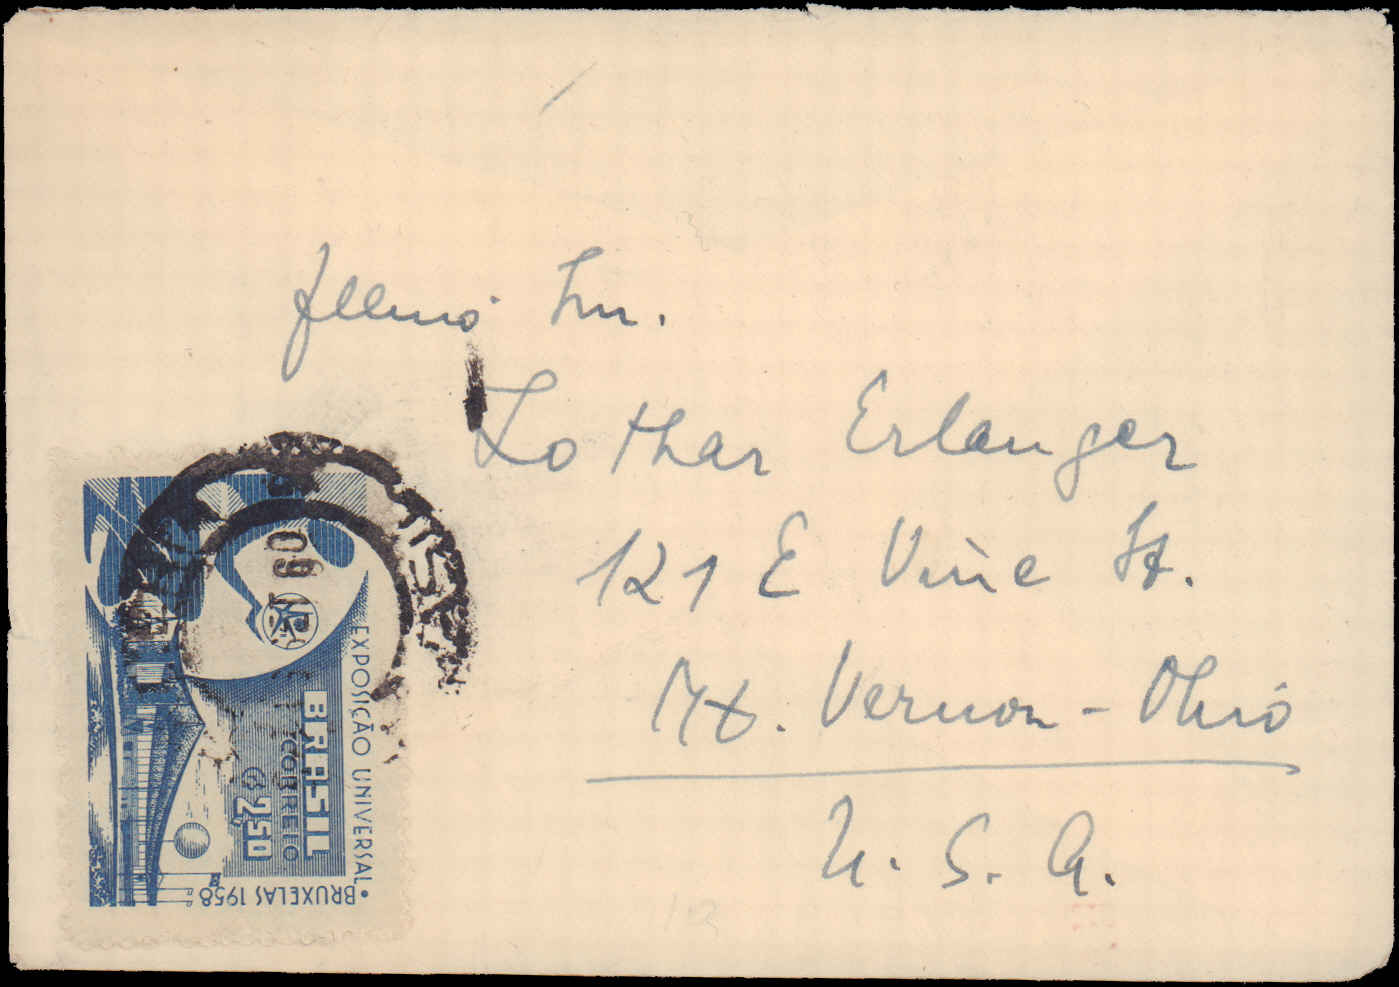 Lothar Erlanger
121 E Vine St.
Mt. Vernon - Ohio
U. S. A.
EXPOSIÇÃO UNIVERSAL • BRUXELAS 1958
BRASIL
CORREIO
2,50